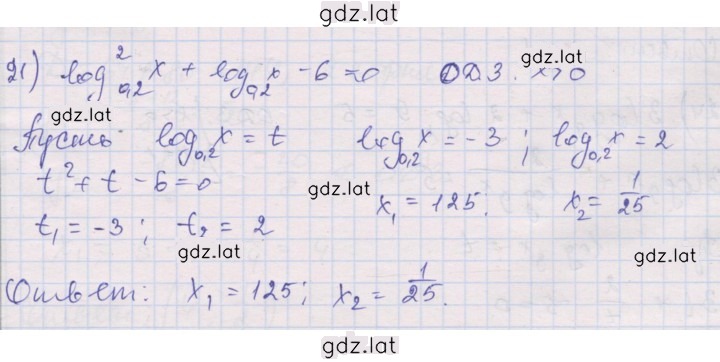 gdz.lat
21) log²₀,₂ x + log₀,₂ x - 6 = 0 ОДЗ. x>0
gdz.lat
gdz.lat
Пусть log₀,₂ x = t log₀,₂ x = -3 ; log₀,₂ x = 2
t² + t - 6 = 0 x₁ = 125. x₂ = 1/25
gdz.lat
t₁ = -3 ; t₂ = 2
gdz.lat
gdz.lat
Ответ: x₁ = 125; x₂ = 1/25.
gdz.lat